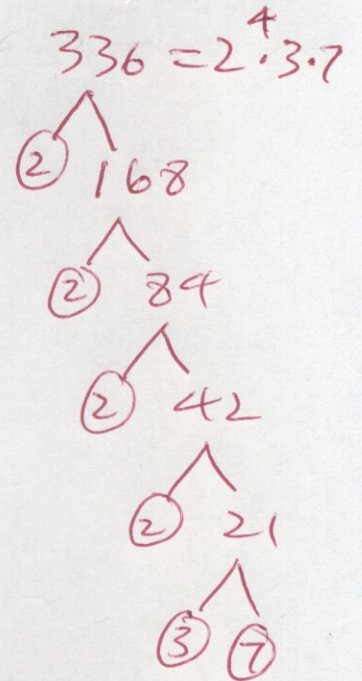 336 = 2⁴·3·7
2 168
2 84
2 42
2 21
3 7